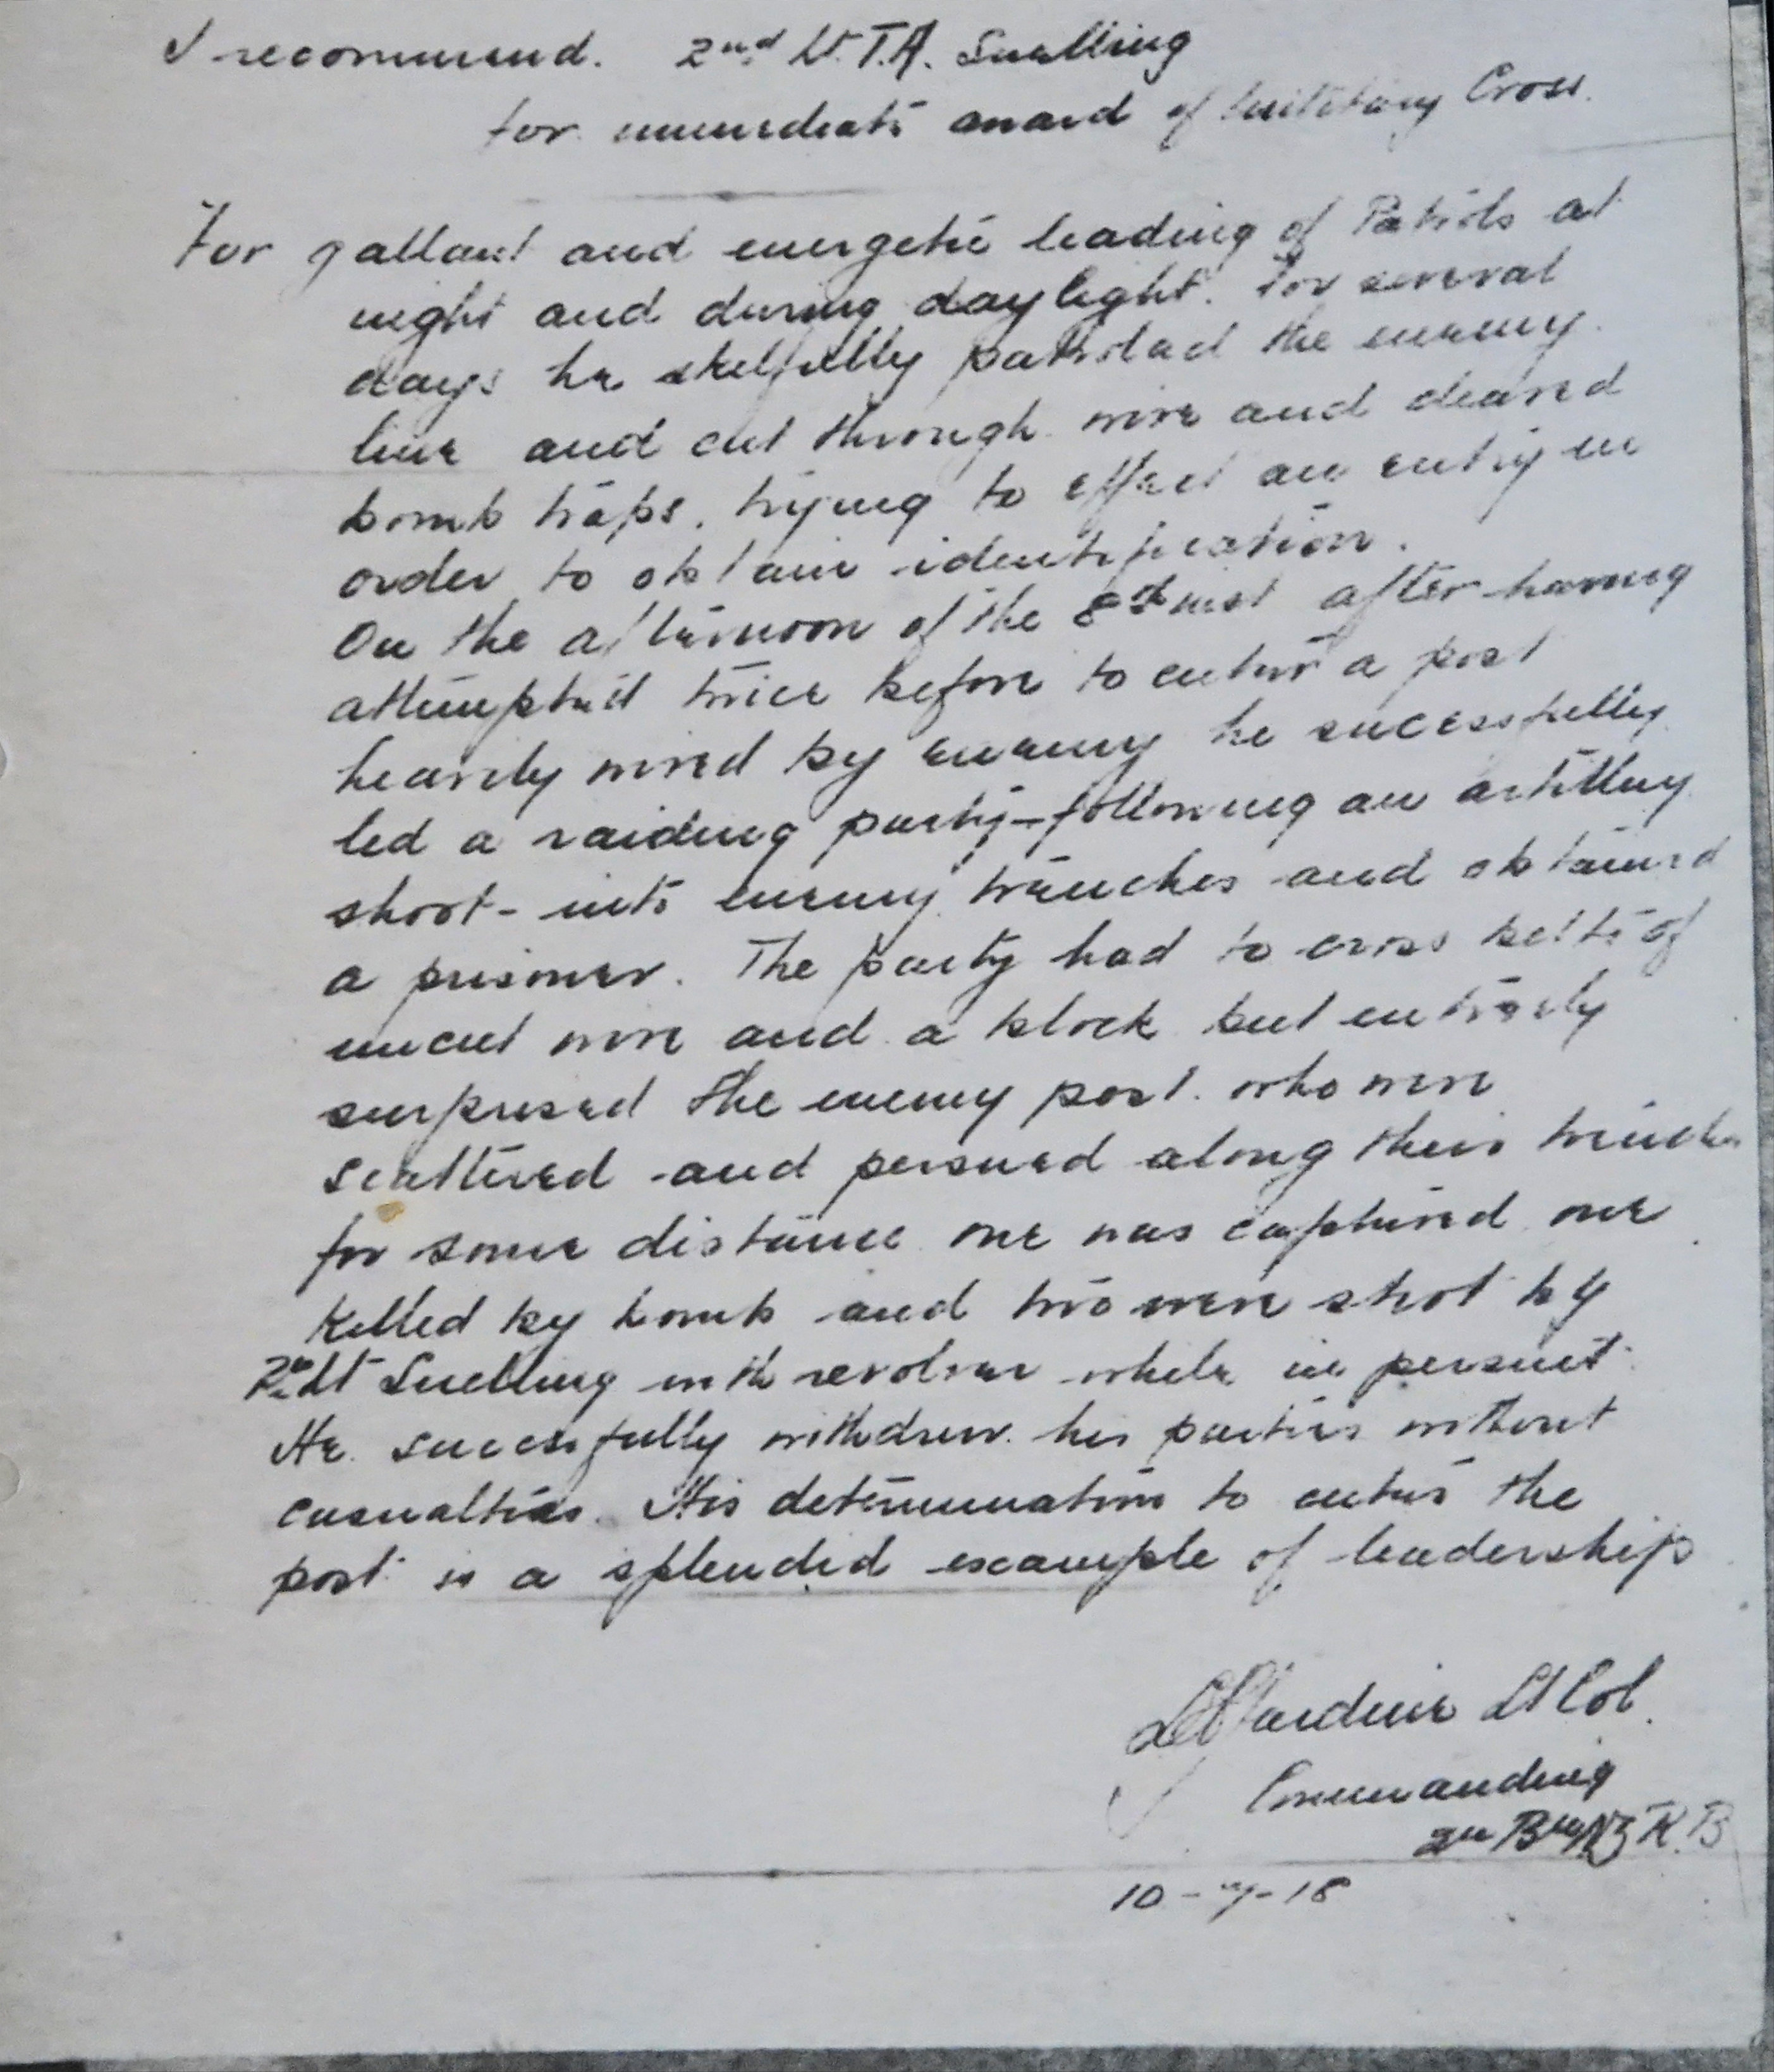 I recommend. 2nd Lt. T.A. Snelling
for immediate award of Military Cross.
For gallant and energetic leading of Patrols at
night and during daylight. For several
days he skilfully patrolled the enemy
line and cut through wire and cleared
bomb traps, trying to effect an entry in
order to obtain identification.
On the afternoon of the 8th inst after having
attempted twice before to enter a post
heavily wired by enemy he sucessfully
led a raiding party - following an artillery
shoot - into enemy trenches and obtained
a prisoner. The party had to cross belts of
uncut wire and a block but entirely
surprised the enemy post. who were
scattered and persued along their trench
for some distance one was captured one
killed by bomb and two were shot by
2nd Lt Snelling with revolver while in persuit.
He succesfully withdrew his parties without
casualties. His determination to enter the
post is a splendid example of leadership
Jardine Lt Col.
Commanding
2nd Bn NZ R.B
10-7-18